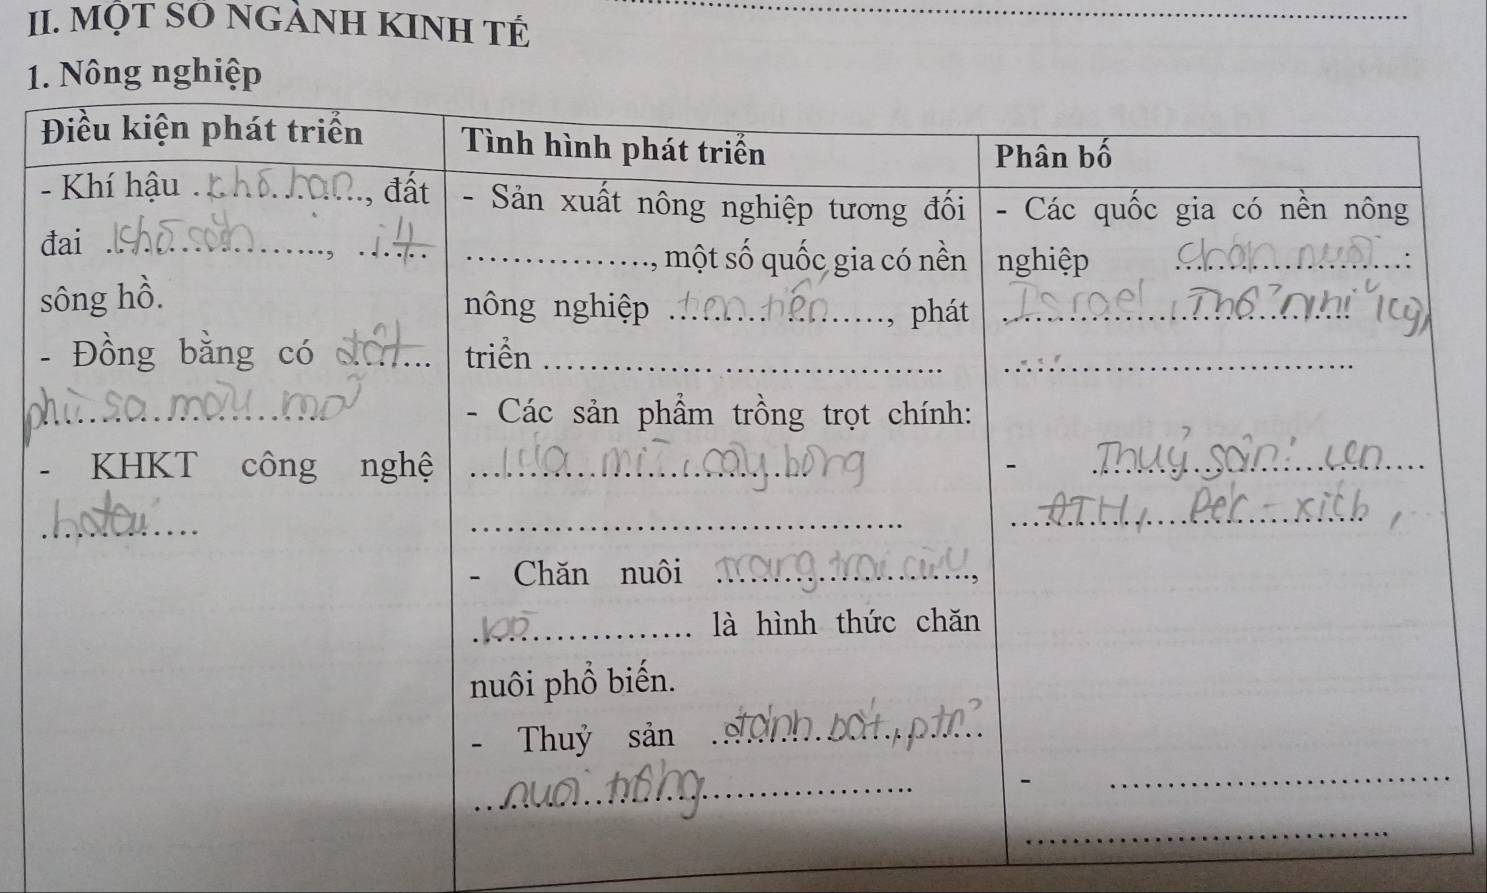 II. MỘT SỐ NGÀNH KINH TẾ
1. Nông nghiệp
Điều kiện phát triển
- Khí hậu .khô hạn..., đất
đai .khô cằn..., ..ít..
sông hồ.
- Đồng bằng có đất...
phù sa màu mỡ
- KHKT công nghệ
hiện đại....
Tình hình phát triển
- Sản xuất nông nghiệp tương đối
..................., một số quốc gia có nền
nông nghiệp .tiên tiến..., phát
triển ........................................
- Các sản phẩm trồng trọt chính:
..lúa mì, cây bông
........................................
- Chăn nuôi ..trang trại cừu...,
.bò................ là hình thức chăn
nuôi phổ biến.
- Thuỷ sản ..đánh bắt, ptr?..
..nuôi trồng.....................
Phân bố
- Các quốc gia có nền nông
nghiệp chăn nuôi..:
Israel, Thổ Nhĩ Kỳ,
...................................
- Thuỷ sản: ven....
...ĐTH, Péc-xích,
- ...................................
...................................